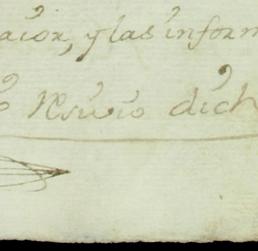 aior, y las inform
Resivio dich